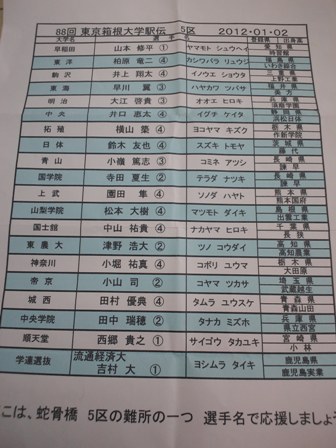 88回 東京箱根大学駅伝 5区 2012・01・02
大学名 選手名 登録県 出身高
早稲田 山本 修平 ① ヤマモト シュウヘイ 愛知県 時習館
東洋 柏原 竜二 ④ カシワバラ リュウジ 福島県 いわき総合
駒沢 井上 翔太 ④ イノウエ ショウタ 三重県 上野工業
東海 早川 翼 ③ ハヤカワ ツバサ 福井県 美方
明治 大江 啓貴 ③ オオエ ヒロキ 兵庫県 須磨学園
中央 井口 恵太 ④ イグチ ケイタ 静岡県 浜松日体
拓殖 横山 築 ④ ヨコヤマ キズク 栃木県 作新学院
日体 鈴木 友也 ④ スズキ トモヤ 茨城県 藤代
青山 小嶺 篤志 ③ コミネ アツシ 長崎県 諫早
国学院 寺田 夏生 ② テラダ ナツキ 長崎県 諫早
上武 園田 隼 ④ ソノダ ハヤト 熊本県 熊本国府
山梨学院 松本 大樹 ④ マツモト ダイキ 島根県 出雲工業
国士館 中山 祐貴 ④ ナカヤマ ヒロキ 千葉県 長狭
東農大 津野 浩大 ② ツノ コウダイ 高知県 高知農業
神奈川 小堀 祐真 ④ コボリ ユウマ 栃木県 大田原
帝京 小山 司 ② コヤマ ツカサ 埼玉県 武蔵越生
城西 田村 優典 ④ タムラ ユウスケ 青森県 青森山田
中央学院 田中 瑞穂 ② タナカ ミズホ 兵庫県 県立西宮
順天堂 西郷 貴之 ① サイゴウ タカユキ 宮崎県 小林
学連選抜 流通経済大 吉村 大 ① ヨシムラ タイキ 鹿児島県 鹿児島実業
こは、蛇骨橋 5区の難所の一つ 選手名で応援しましょ